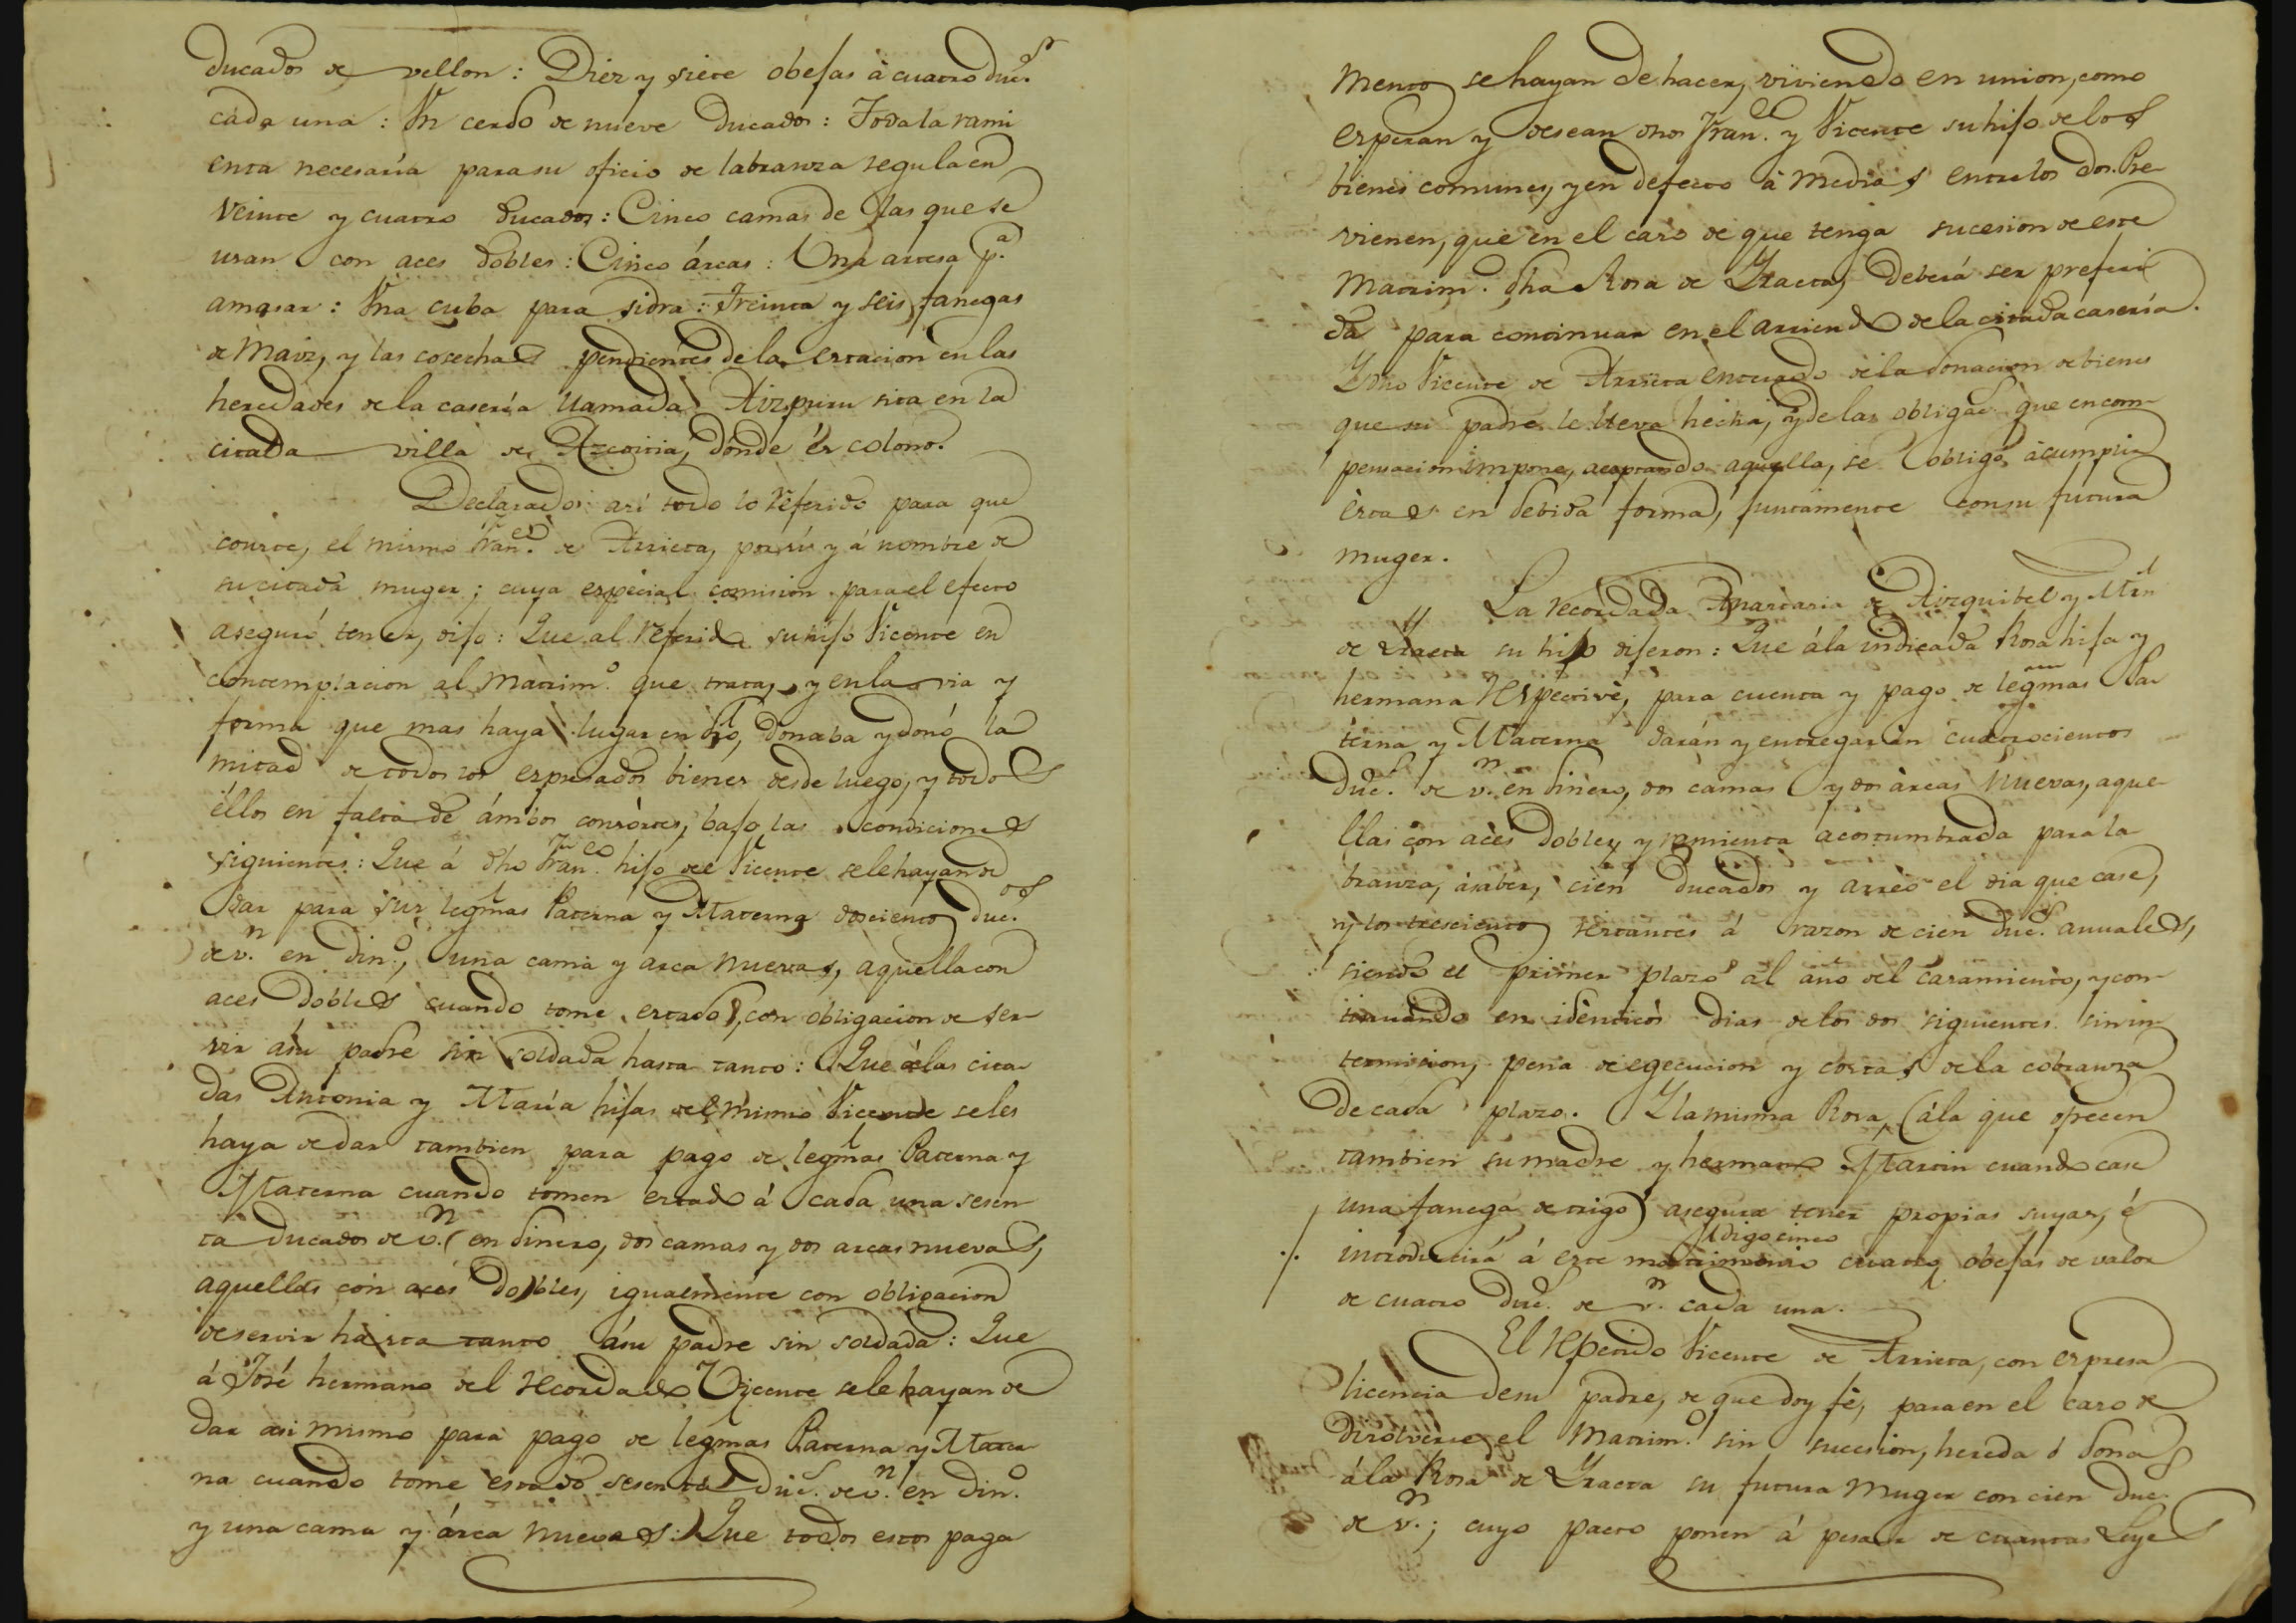 ducados de vellon: Diez y siete obejas à cuatro duc.s
cada una: Un cerdo de nueve Ducados: Toda la rami
enta necesaria para su oficio de labranza regulaen
Veinte y cuatro Ducados: Cinco camas de las que se
usan con aces dobles: Cinco árcas: Una artesa p.a
amasar: Una cuba para sidra: Treinta y seis fanegas
de Maiz, y las cosechas pendientes de la estacion en las
heredades de la casería llamada Aizpuru sita en la
citada villa de Azcoitia, dónde és colono.
Declarado asi todo lo referido para que
conste, el mismo Fran.co de Arrieta, por si y á nombre de
su citada muger; cuya especial comision para el efecto
aseguró tener, dijo: Que al referido su hijo Vicente en
contemplacion al Matrim.o que trata, y en la via y
forma que mas haya lugar en dro, donaba y donó la
mitad de todos los espresados bienes desde luego, y todos
éllos en falta de ámbos consórtes, bajo las condiciones
siguientes: Que á dho Fran.co hijo del Vicente se le hayan de
dar para sus legmas Paterna y Materna doscientos duc.os
de v.n en din.o, una cama y arca nuevas, aquella con
aces dobles cuando tome estado, con obligacion de ser
vir asu padre sin soldada hasta tanto: Que álas cita
das Antonia y María hijas del mismo Vicente seles
haya de dar tambien para pago de legmas Paterna y
Materna cuando tomen estado á cada una sesen
ta ducados de v.n en dinero, dos camas y dos arcas nuevas,
aquellas con aces dobles, igualmente con obligacion
de servir hasta tanto ásu padre sin soldada: Que
á José hermano del recordado Vicente se le hayan de
dar asi mismo para pago de legmas Paterna y Mater
na cuando tome estado sesenta Duc.s de v.n en din.o
y una cama y árca nuevas: Que todos estos paga
mentos se hayan de hacer, viviendo en union, como
esperan y desean dhos Fran.co y Vicente su hijo de los
bienes comunes, y en defecto à medias entre los dos. Pre
vienen, que en el caso de que tenga sucesion de este
Matrim.o dha Rosa de Yraeta, deberá ser preferi
da para continuar en el arriendo de la citada casería.
Y dho Vicente de Arrieta enterado de la donacion de bienes
que su padre le lleva hecha, y de las obligac.s que en com
pensacion impone, aceptando aquella, se obligó á cumplir
èstas en debida forma, juntamente con su futura
muger.
La recordada Anastasia de Aizquibel y Mrn
de Yraeta su hijo dijeron: Que á la indicada Rosa hija y
hermana respective, para cuenta y pago de legmas Pa
terna y Materna darán y entregarán cuatrocientos
Duc.s de v.n en dinero, dos camas y dos àrcas nuevas, aque
llas con aces dobles, y ramienta acostumbrada para la
branza, á saber, cien ducados y arreo el dia que case,
y los trescientos restantes á razon de cien Duc.s anuales,
siendo el primer plazo al año del casamiento, y con
tinuando en idénticos dias de los dos siguientes sin in
termision, pena de egecucion y costas de la cobranza
de cada plazo. Y la misma Rosa, (á la que ofrecen
tambien su madre y hermano Martin cuando case
una fanega de trigo) asegura tener propias suyas, é
digo cinco
introducirá á este matrimonio cuatro obejas de valor
de cuatro Duc.s de v.n cada una.
El referido Vicente de Arrieta, con espresa
licencia desu padre, de que doy fé, para en el caso de
disolverse el Matrim.o sin sucesion, hereda ó dona
á la Rosa de Yraeta su futura Muger con cien Duc.s
de v.n; cuyo pacto ponen á pesar de cuantas Leyes